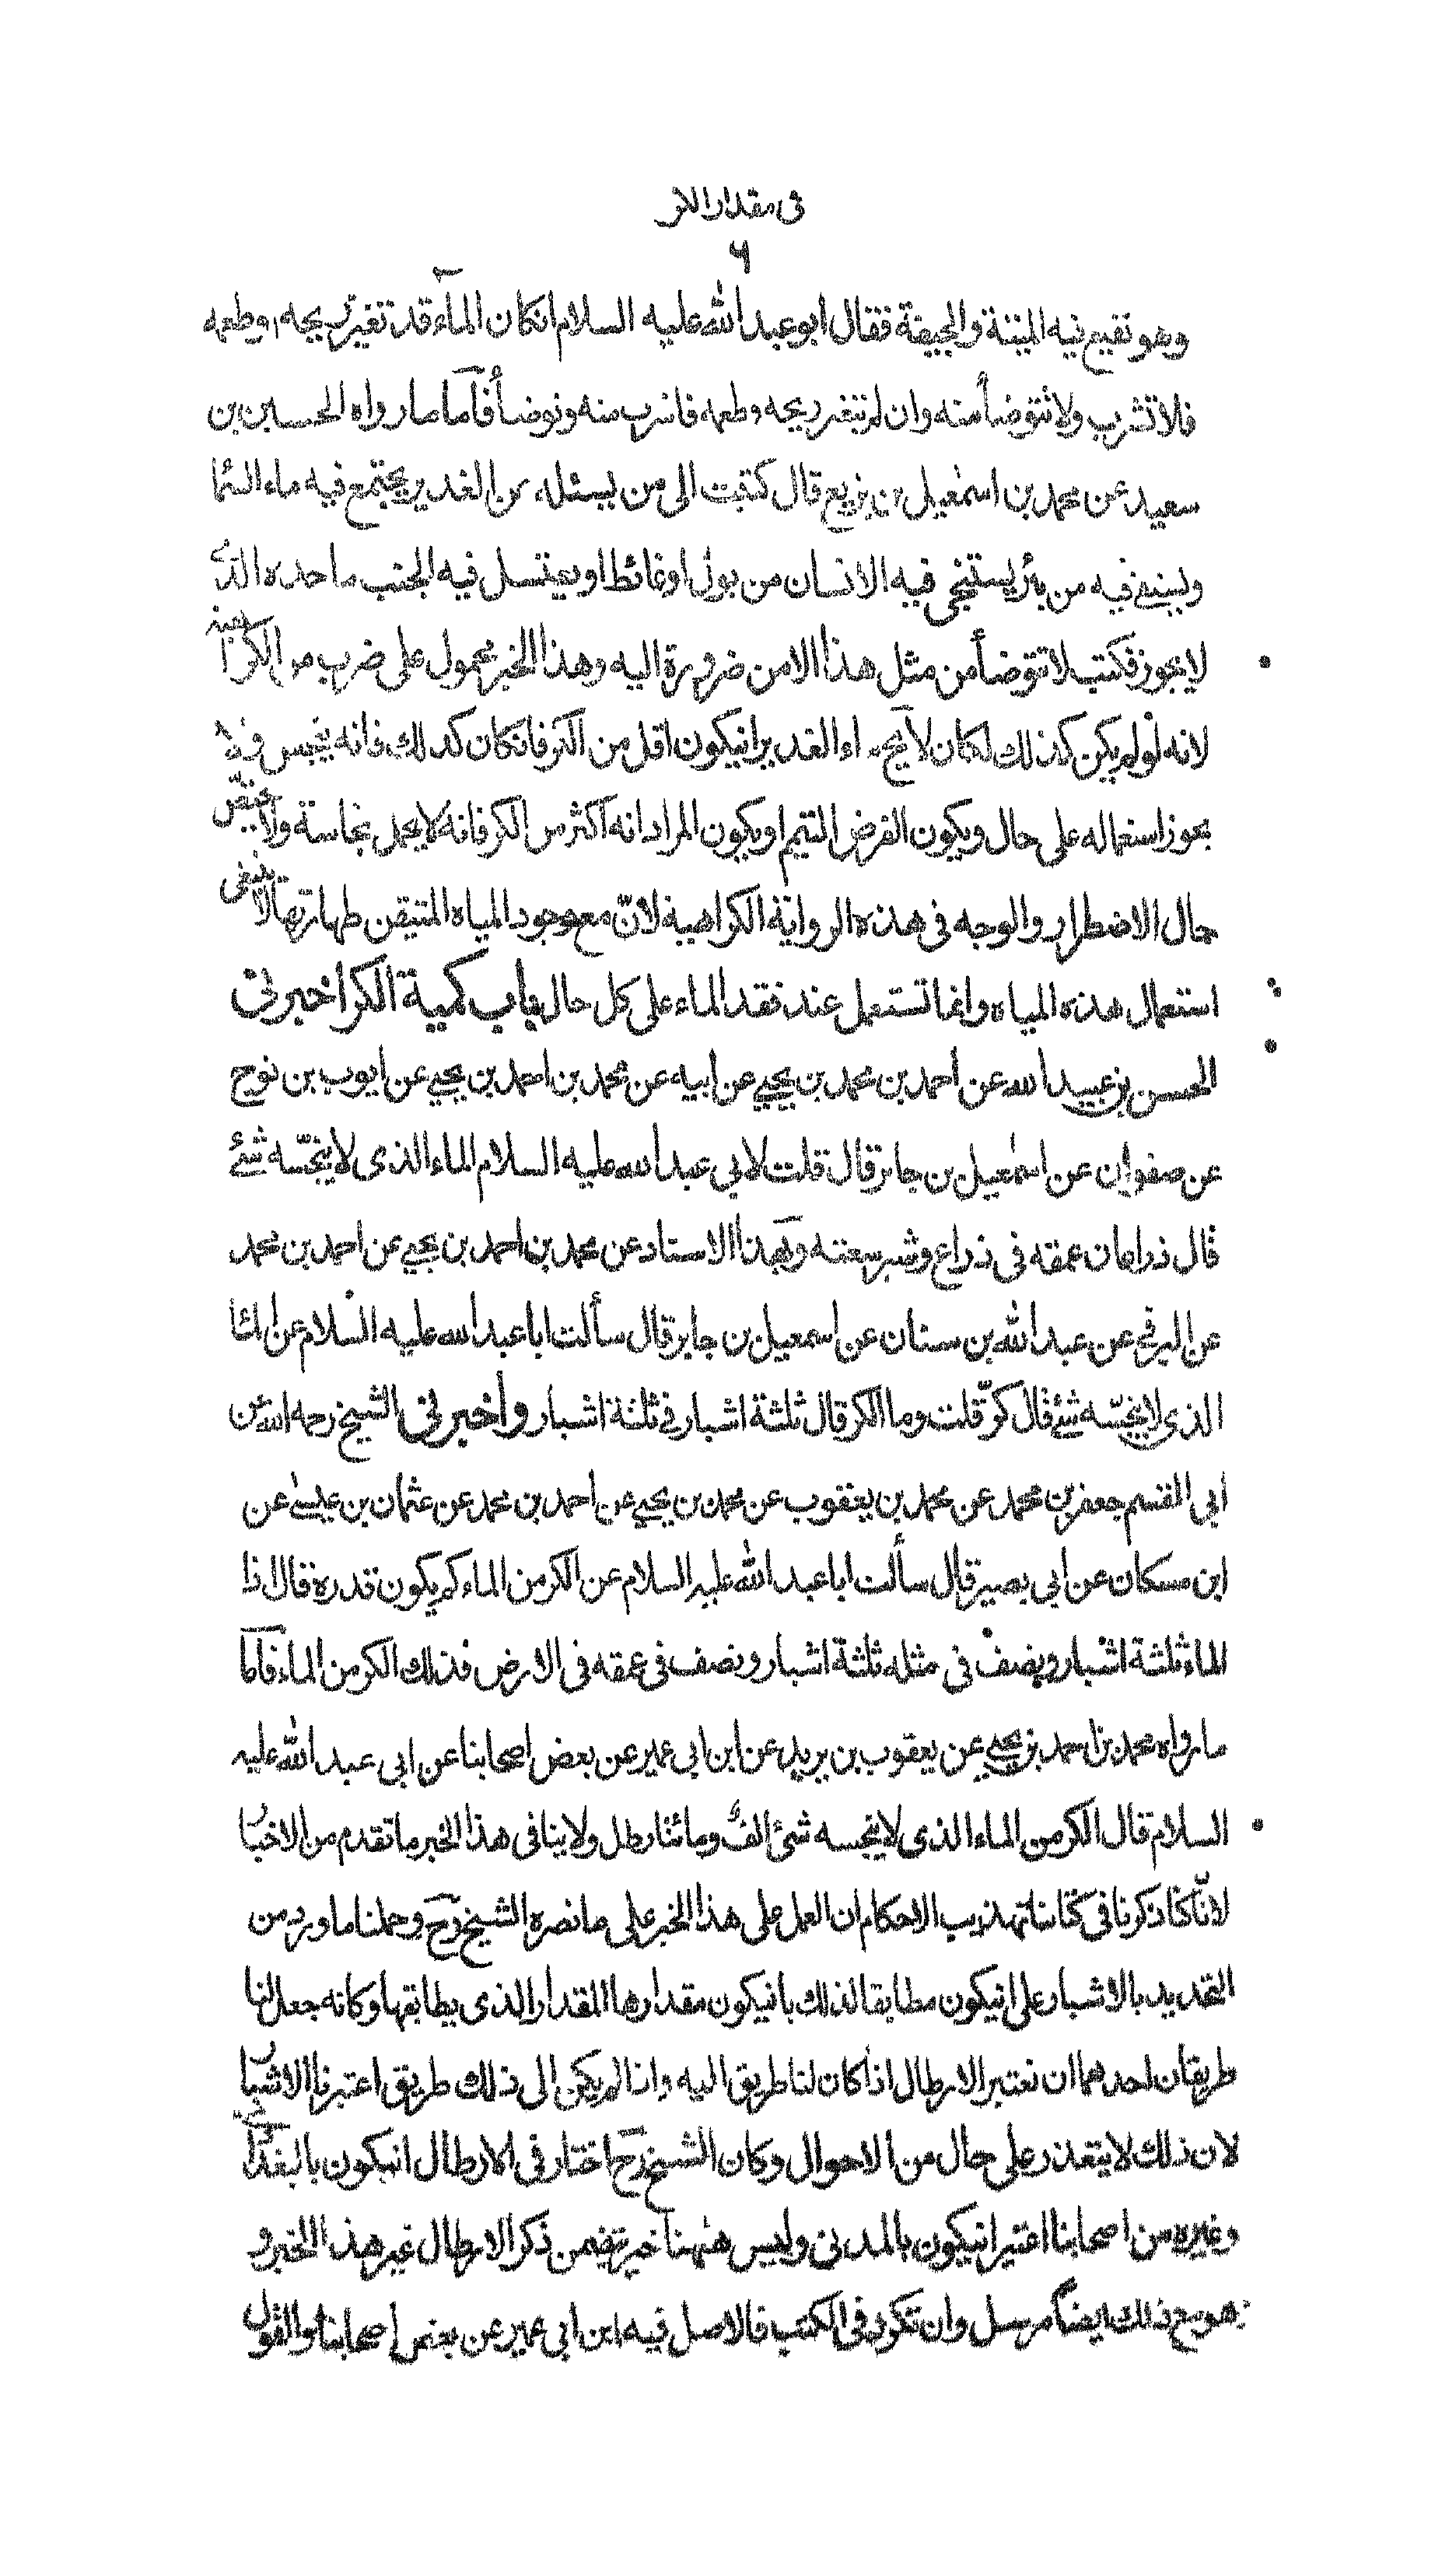 فى مقدار الكر
٦
وهو نقيع فيه الميتة والجيفة فقال ابو عبد الله عليه السلام انكان الماء قد تغير ريحه او طعمه
فلا تشرب ولا تتوضأ منه وان لم تتغير ريحه وطعمه فاشرب منه وتوضأ فأما ما رواه الحسين بن
سعيد عن محمد بن اسمعيل بن بزيع قال كتبت الى من يسئله عن الغدير يجتمع فيه ماء السما
ويستقى فيه من بئر يستنجى فيه الانسان من بول او غائط او يغتسل فيه الجنب ما حده الذى
لا يجوز فكتب لا تتوضأ من مثل هذا الا من ضرورة اليه وهذا الخبر محمول على ضرب من الكراهية
لانه لو لم يكن كذلك لكان لا يخ ماء الغدير انيكون اقل من الكر فانكان كذلك فانه ينجس ولا
يجوز استعماله على حال ويكون الفرض التيمم او يكون المراد انه اكثر من الكر فانه لا يحمل نجاسة ولا يختص
حال الاضطرار والوجه فى هذه الرواية الكراهية لانّ مع وجود المياه المتيقن طهارتها لا ينبغى
استعمال هذه المياه وانما تستعمل عند فقد الماء على كل حال باب كمية الكر اخبرنى
الحسن بن عبيد الله عن احمد بن محمد بن يحيى عن ابيه عن محمد بن احمد بن يحيى عن ايوب بن نوح
عن صفوان عن اسمعيل بن جابر قال قلت لابى عبد الله عليه السلام الماء الذى لا ينجّسه شئ
قال ذراعان عمقه فى ذراع وشبر سعته وبهذا الاسناد عن محمد بن احمد بن يحيى عن احمد بن محمد
عن البرقى عن عبد الله بن سنان عن اسمعيل بن جابر قال سألت ابا عبد الله عليه السلام عن الما
الذى لا ينجّسه شئ قال كرّ قلت وما الكر قال ثلثة اشبار فى ثلثة اشبار واخبرنى الشيخ رحمه الله عن
ابى القسم جعفر بن محمد عن محمد بن يعقوب عن محمد بن يحيى عن احمد بن محمد عن عثمان بن عيسى عن
ابن مسكان عن ابى بصير قال سألت ابا عبد الله عليه السلام عن الكر من الماء كم يكون قدره قال اذا
الماء ثلثة اشبار ونصف فى مثله ثلثة اشبار ونصف فى عمقه فى الارض فذلك الكر من الماء فأما
ما رواه محمد بن احمد بن يحيى عن يعقوب بن يزيد عن ابن ابى عمير عن بعض اصحابنا عن ابى عبد الله عليه
السلام قال الكر من الماء الذى لا ينجسه شئ الف ومائتا رطل ولا ينافى هذا الخبر ما تقدم من الاخبار
لانّا كنا ذكرنا فى كتابنا تهذيب الاحكام ان العمل على هذا الخبر على ما نصره الشيخ رح وحملنا ما ورد من
التحديد بالاشبار على انيكون مطابقا لذلك بانيكون مقدارها المقدار الذى يطابقها وكانه جعل لنا
طريقان احدهما ان نعتبر الارطال اذا كان لنا طريق اليه واذا لم يكن الى ذلك طريق اعتبرنا الاشبار
لان ذلك لا يتعذر على حال من الاحوال وكان الشيخ رح اختار فى الارطال انيكون بالبغدادى
وغيره من اصحابنا اعتبر انيكون بالمدنى وليس ههنا خبر يتضمن ذكر الارطال غير هذا الخبر و
هو مع ذلك ايضاً مرسل وان تكرر فى الكتب فالاصل فيه ابن ابى عمير عن بعض اصحابنا والقول